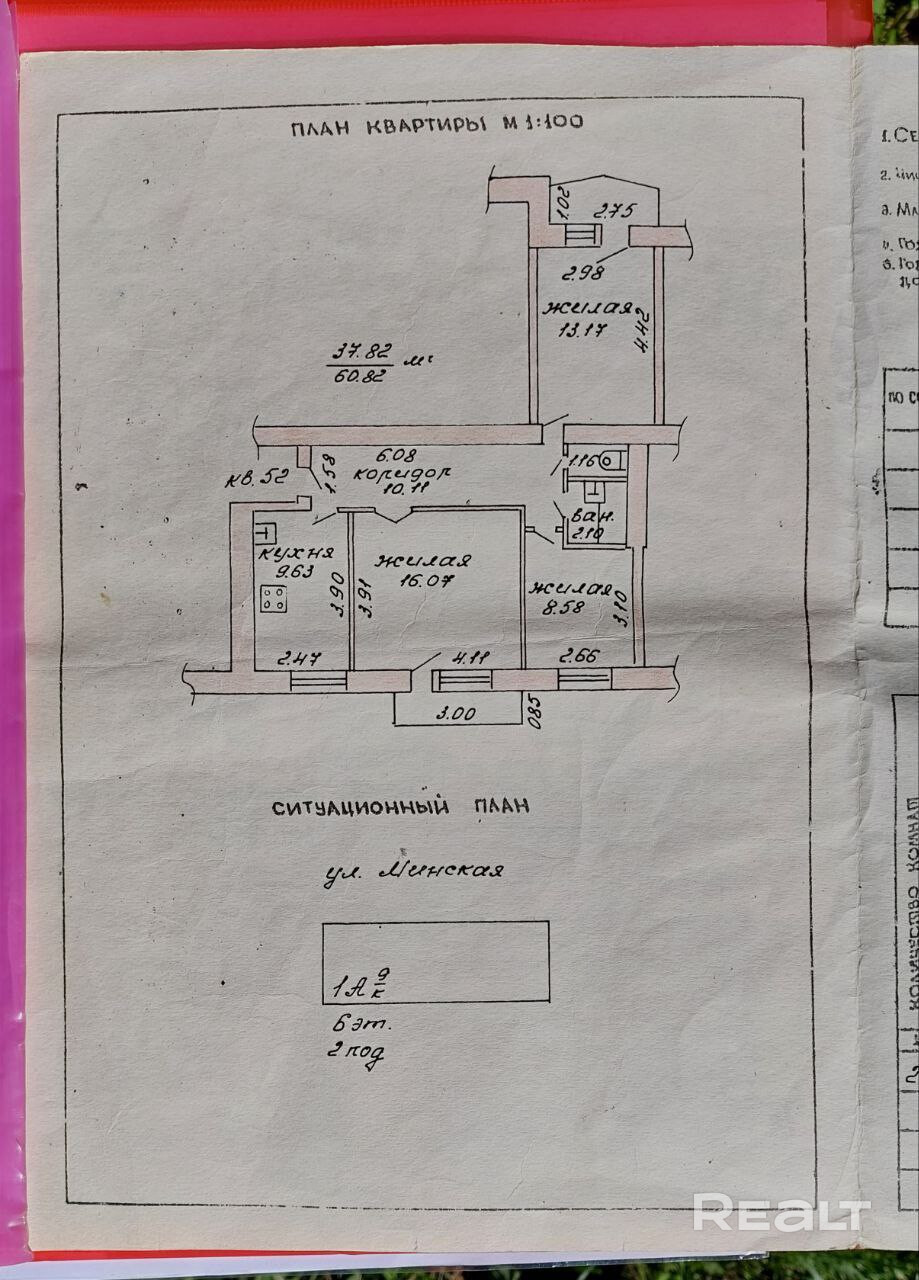 ПЛАН КВАРТИРЫ М 1:100
1.02
2.75
2.98
жилая
13.17
4.42
37.82 м²
60.82
кв. 52
1.58
6.08
коридор
10.11
1.16
ван.
2.10
кухня
9.63
3.90
2.47
жилая
16.07
3.91
4.11
жилая
8.58
3.10
2.66
3.00
085
СИТУАЦИОННЫЙ ПЛАН
ул. Минская
1А 9/к
6 эт.
2 под
1. СЕ
2.
3.
ПО С
КОЛИЧЕСТВО КОМНАТ
Realt